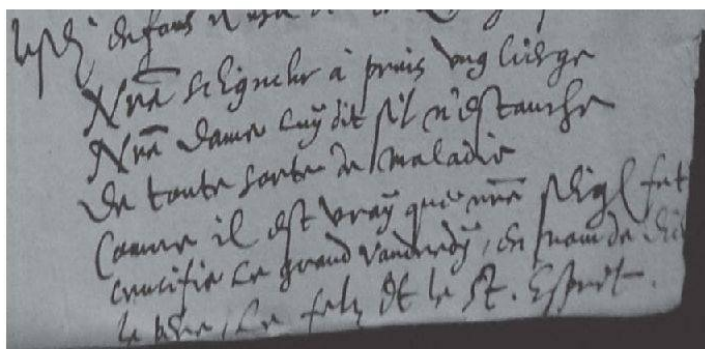 enfans
Nr̃e seigneur à prins ung cierge
Nr̃e dame luy dit s'il n'estanche
De toute sorte de maladie
Comme il est vray que nr̃e seigr fut
crucifie Le grand vandredy, Au nom de
le pere, Le filz Et le St. Esprit.